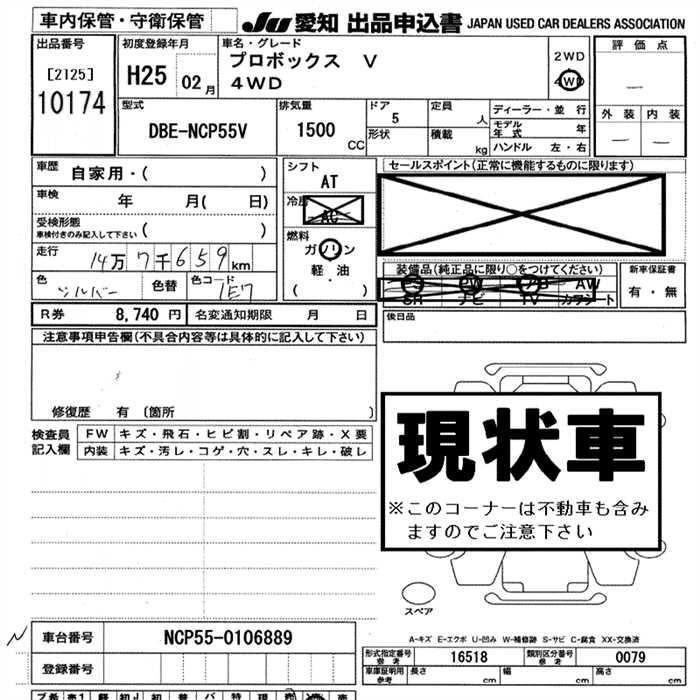 車内保管・守衛保管
JU 愛知 出品申込書 JAPAN USED CAR DEALERS ASSOCIATION
出品番号
[2125]
10174
初度登録年月
H25 02月
車名・グレード
プロボックス V
4WD
2WD
4WD
評価点
—
外装 内装
— —
型式
DBE-NCP55V
排気量
1500
CC
ドア
5
形状
定員
人
積載
kg
ディーラー・並行
モデル年式 年
ハンドル 左・右
車歴 自家用・( )
車検 年 月( 日)
受検形態
車検付きのみ記入して下さい ( )
走行 14万7千659km
色 シルバー 色替 色コード 1E7
シフト
AT
冷房
AC
燃料
ガソリン
軽・油
( )
セールスポイント(正常に機能するものに限ります)
装備品(純正品に限り○をつけてください)
PS PW AB AW
SR ナビ TV カラシート
新車保証書
有・無
R券 8,740 円 名変通知期限 月 日
後日品
注意事項申告欄(不具合内容等は具体的に記入して下さい)
修復歴 有 〔箇所 〕
検査員記入欄
FW キズ・飛石・ヒビ割・リペア跡・X要
内装 キズ・汚レ・コゲ・穴・スレ・キレ・破レ
現状車
※このコーナーは不動車も含み
ますのでご注意下さい
スペア
A-キズ E-エクボ U-凹み W-補修跡 S-サビ C-腐食 XX-交換済
車台番号 NCP55-0106889
登録番号
形式指定番号 参考 16518 類別区分番号 参考 0079
車庫証明用 参考 長さ cm 幅 cm 高さ cm